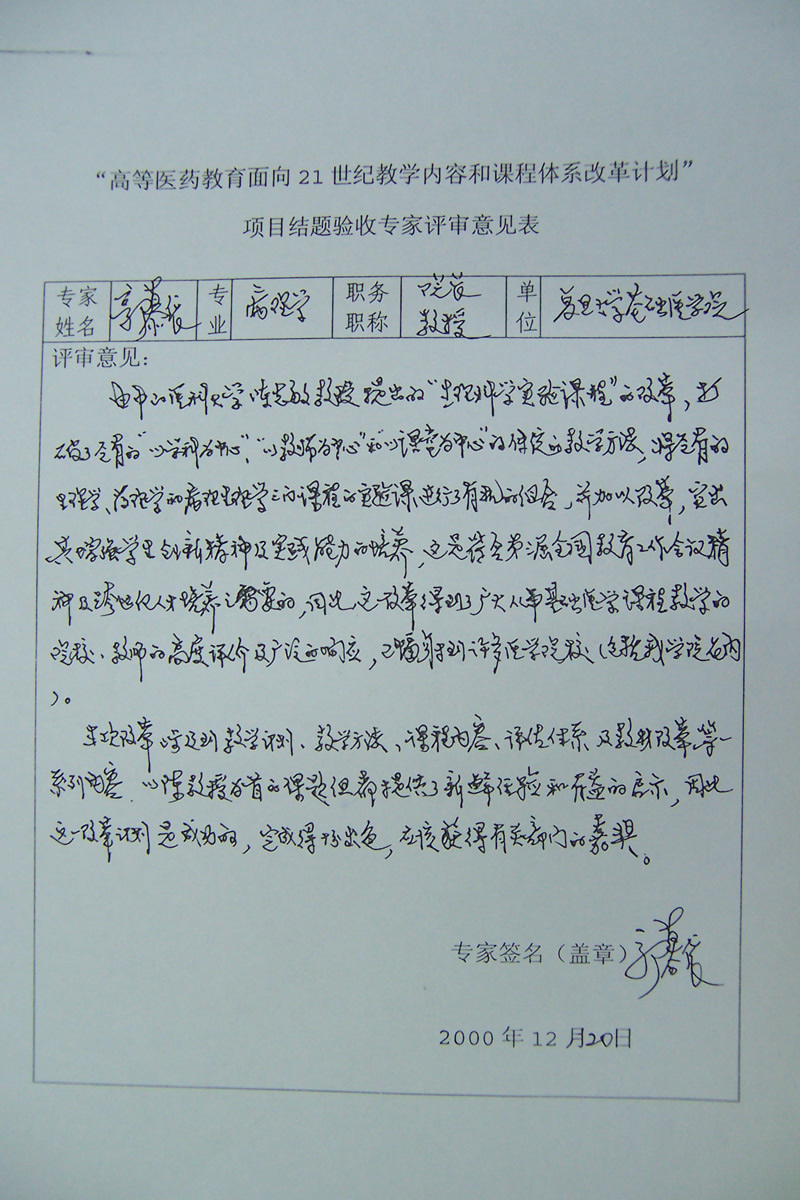 “高等医药教育面向 21 世纪教学内容和课程体系改革计划”
项目结题验收专家评审意见表
专家姓名 郭慕依 专业 病理学 职务职称 院长 教授 单位 复旦大学基础医学院
评审意见：
由中山医科大学陈志敏教授提出的“生理科学实验课程”的改革，打
破了原有的“以学科为中心”、“以教师为中心”和“以课堂为中心”的传统的教学方法，将原有的
生理学、药理学的病理生理学三门课程的实验课进行了有机的组合，并加以改革，突出
其培养学生创新精神及实践能力的培养，这是符合第三届全国教育工作会议精
神及跨世纪人才培养之需要的，因此，这一改革得到了广大从事基础医学课程教学的
院校、教师的高度评价及广泛的响应，已辐射到许多医学院校（包括我学院在内
）。
本次改革涉及到教学计划、教学方法、课程内容、评估体系及教材改革等一
系列内容，以陈教授为首的课题组都提供了新鲜经验和有益的启示，因此
这一改革计划是成功的，完成得十分出色，应该获得有关部门的嘉奖。
专家签名（盖章）
2000 年 12 月20日